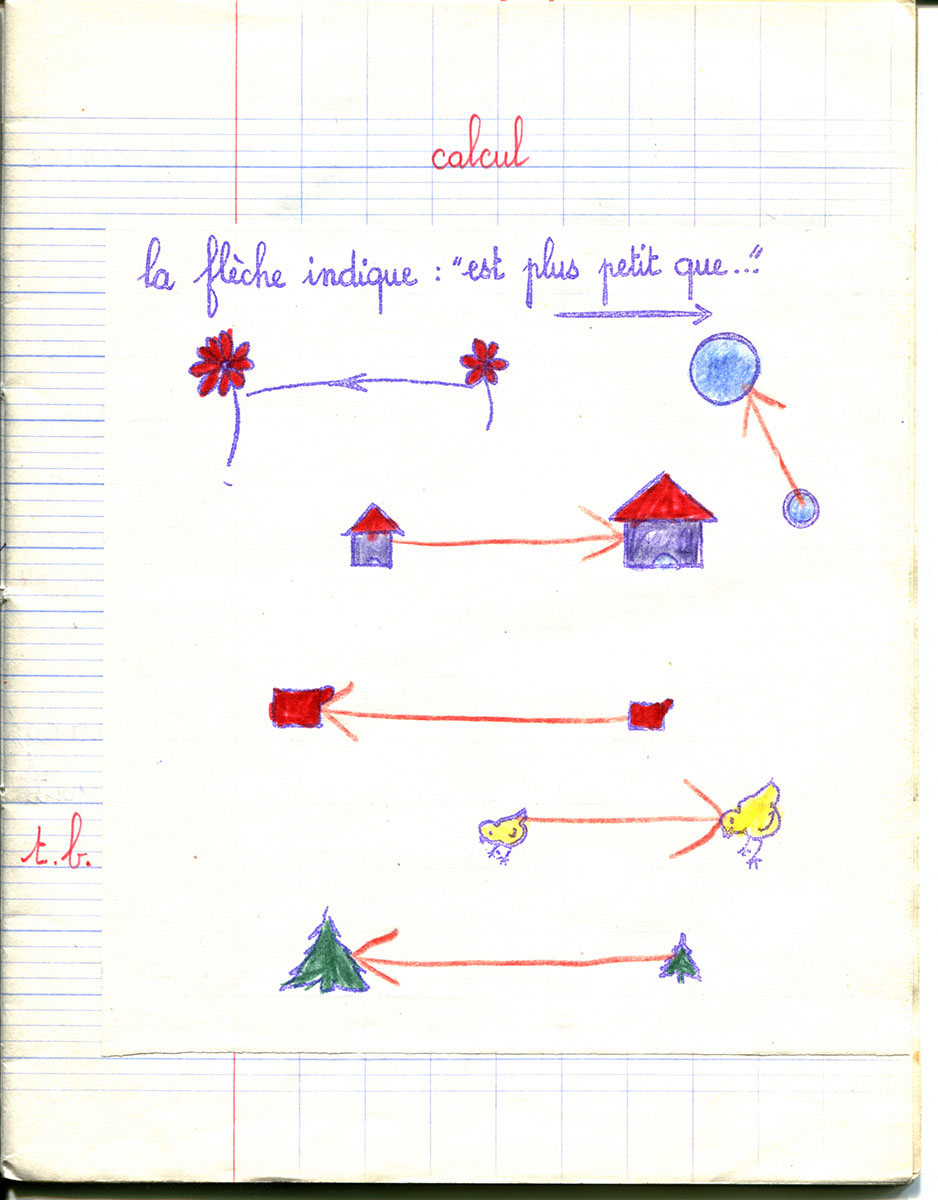 calcul
la flèche indique : "est plus petit que..."
t.b.